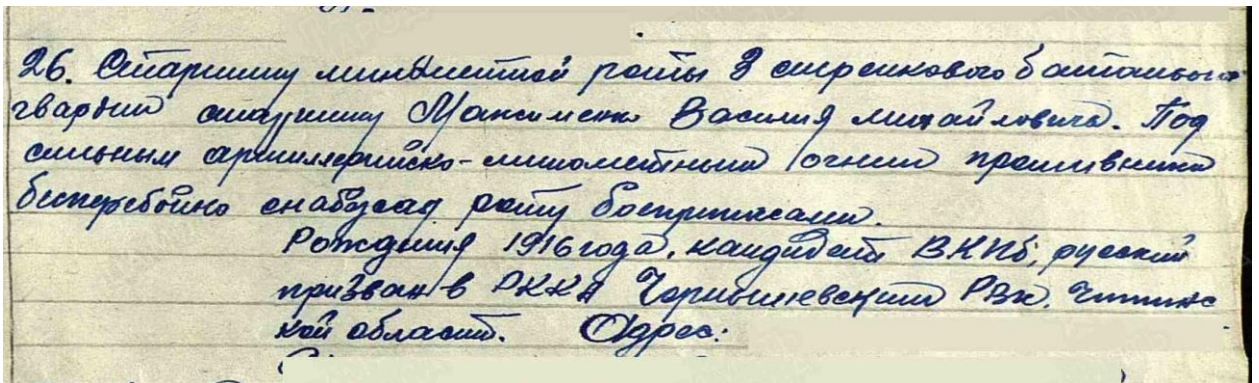 26. Старшину минометной роты 3 стрелкового батальона
гвардии старшину Максименко Василия Михайловича. Под
сильным артиллерийско-минометным огнем противника
бесперебойно снабжал роту боеприпасами.
Рождения 1916 года, кандидат ВКПб, русский
призван в РККА Чернышевским РВК. Читинс
кой области. Адрес: